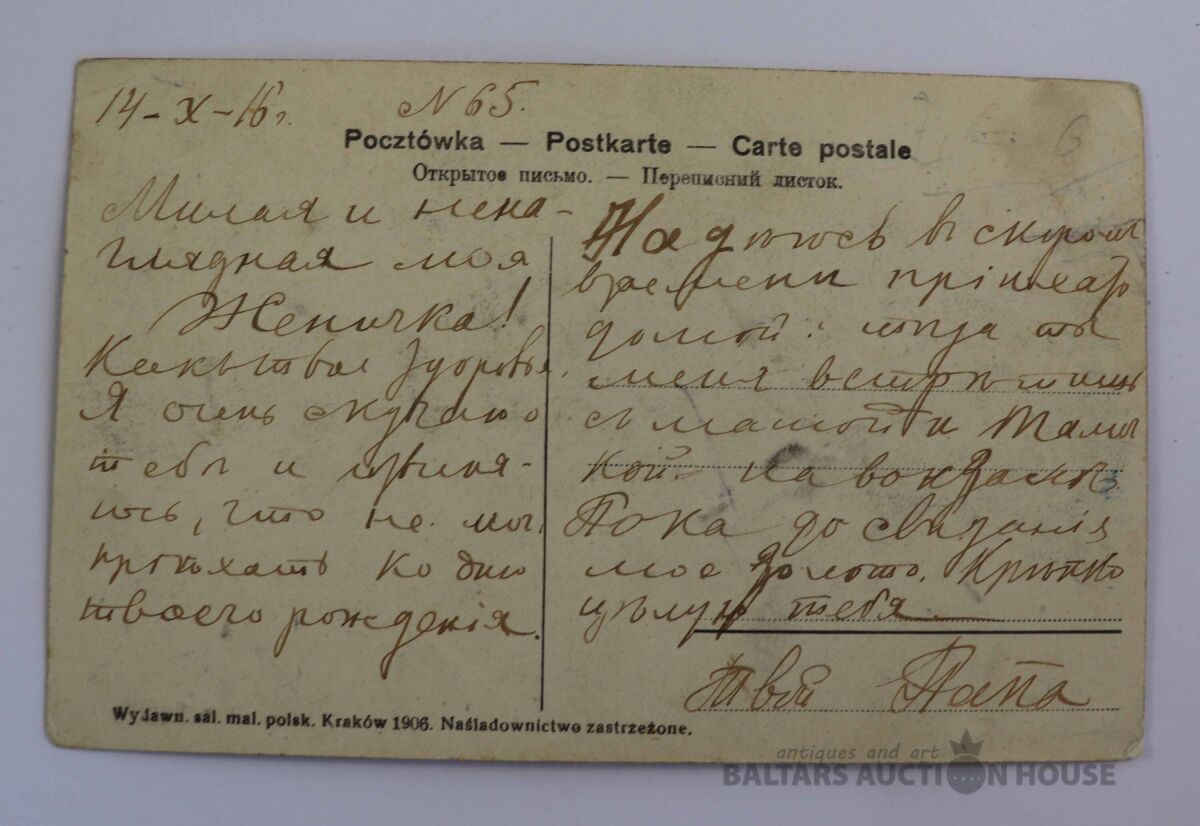 14-X-16 г. N 65.
Pocztówka — Postkarte — Carte postale
Открытое письмо. — Переписний листок.
Милая и нена-
глядная моя
Женичка!
Какъ твое здоровье.
Я очень скучаю о
тебѣ и извиня-
юсь, что не могъ
пріѣхать ко дню
твоего рожденія.
Надѣюсь въ скромъ
времени пріѣхать
домой: тогда ты
меня встрѣтишь
съ мамой и Тамоч
кой на вокзалѣ
Пока до свиданія
мое золото. Крѣпко
цѣлую тебя
Твой Папа
Wydawn. sal. mal. polsk. Kraków 1906. Naśladownictwo zastrzeżone.
antiques and art
BALTARS AUCTION HOUSE